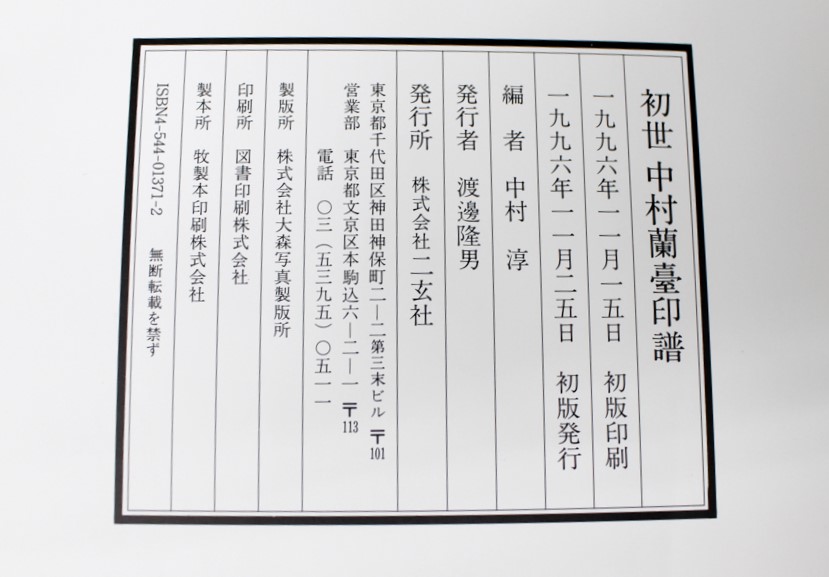 初世 中村蘭臺印譜
一九九六年一一月一五日 初版印刷
一九九六年一一月二五日 初版発行
編者 中村淳
発行者 渡邊隆男
発行所 株式会社二玄社
東京都千代田区神田神保町二―二第三末ビル 〒101
営業部 東京都文京区本駒込六―二―一 〒113
電話 〇三(五三九五)〇五一一
製版所 株式会社大森写真製版所
印刷所 図書印刷株式会社
製本所 牧製本印刷株式会社
ISBN4-544-01371-2 無断転載を禁ず